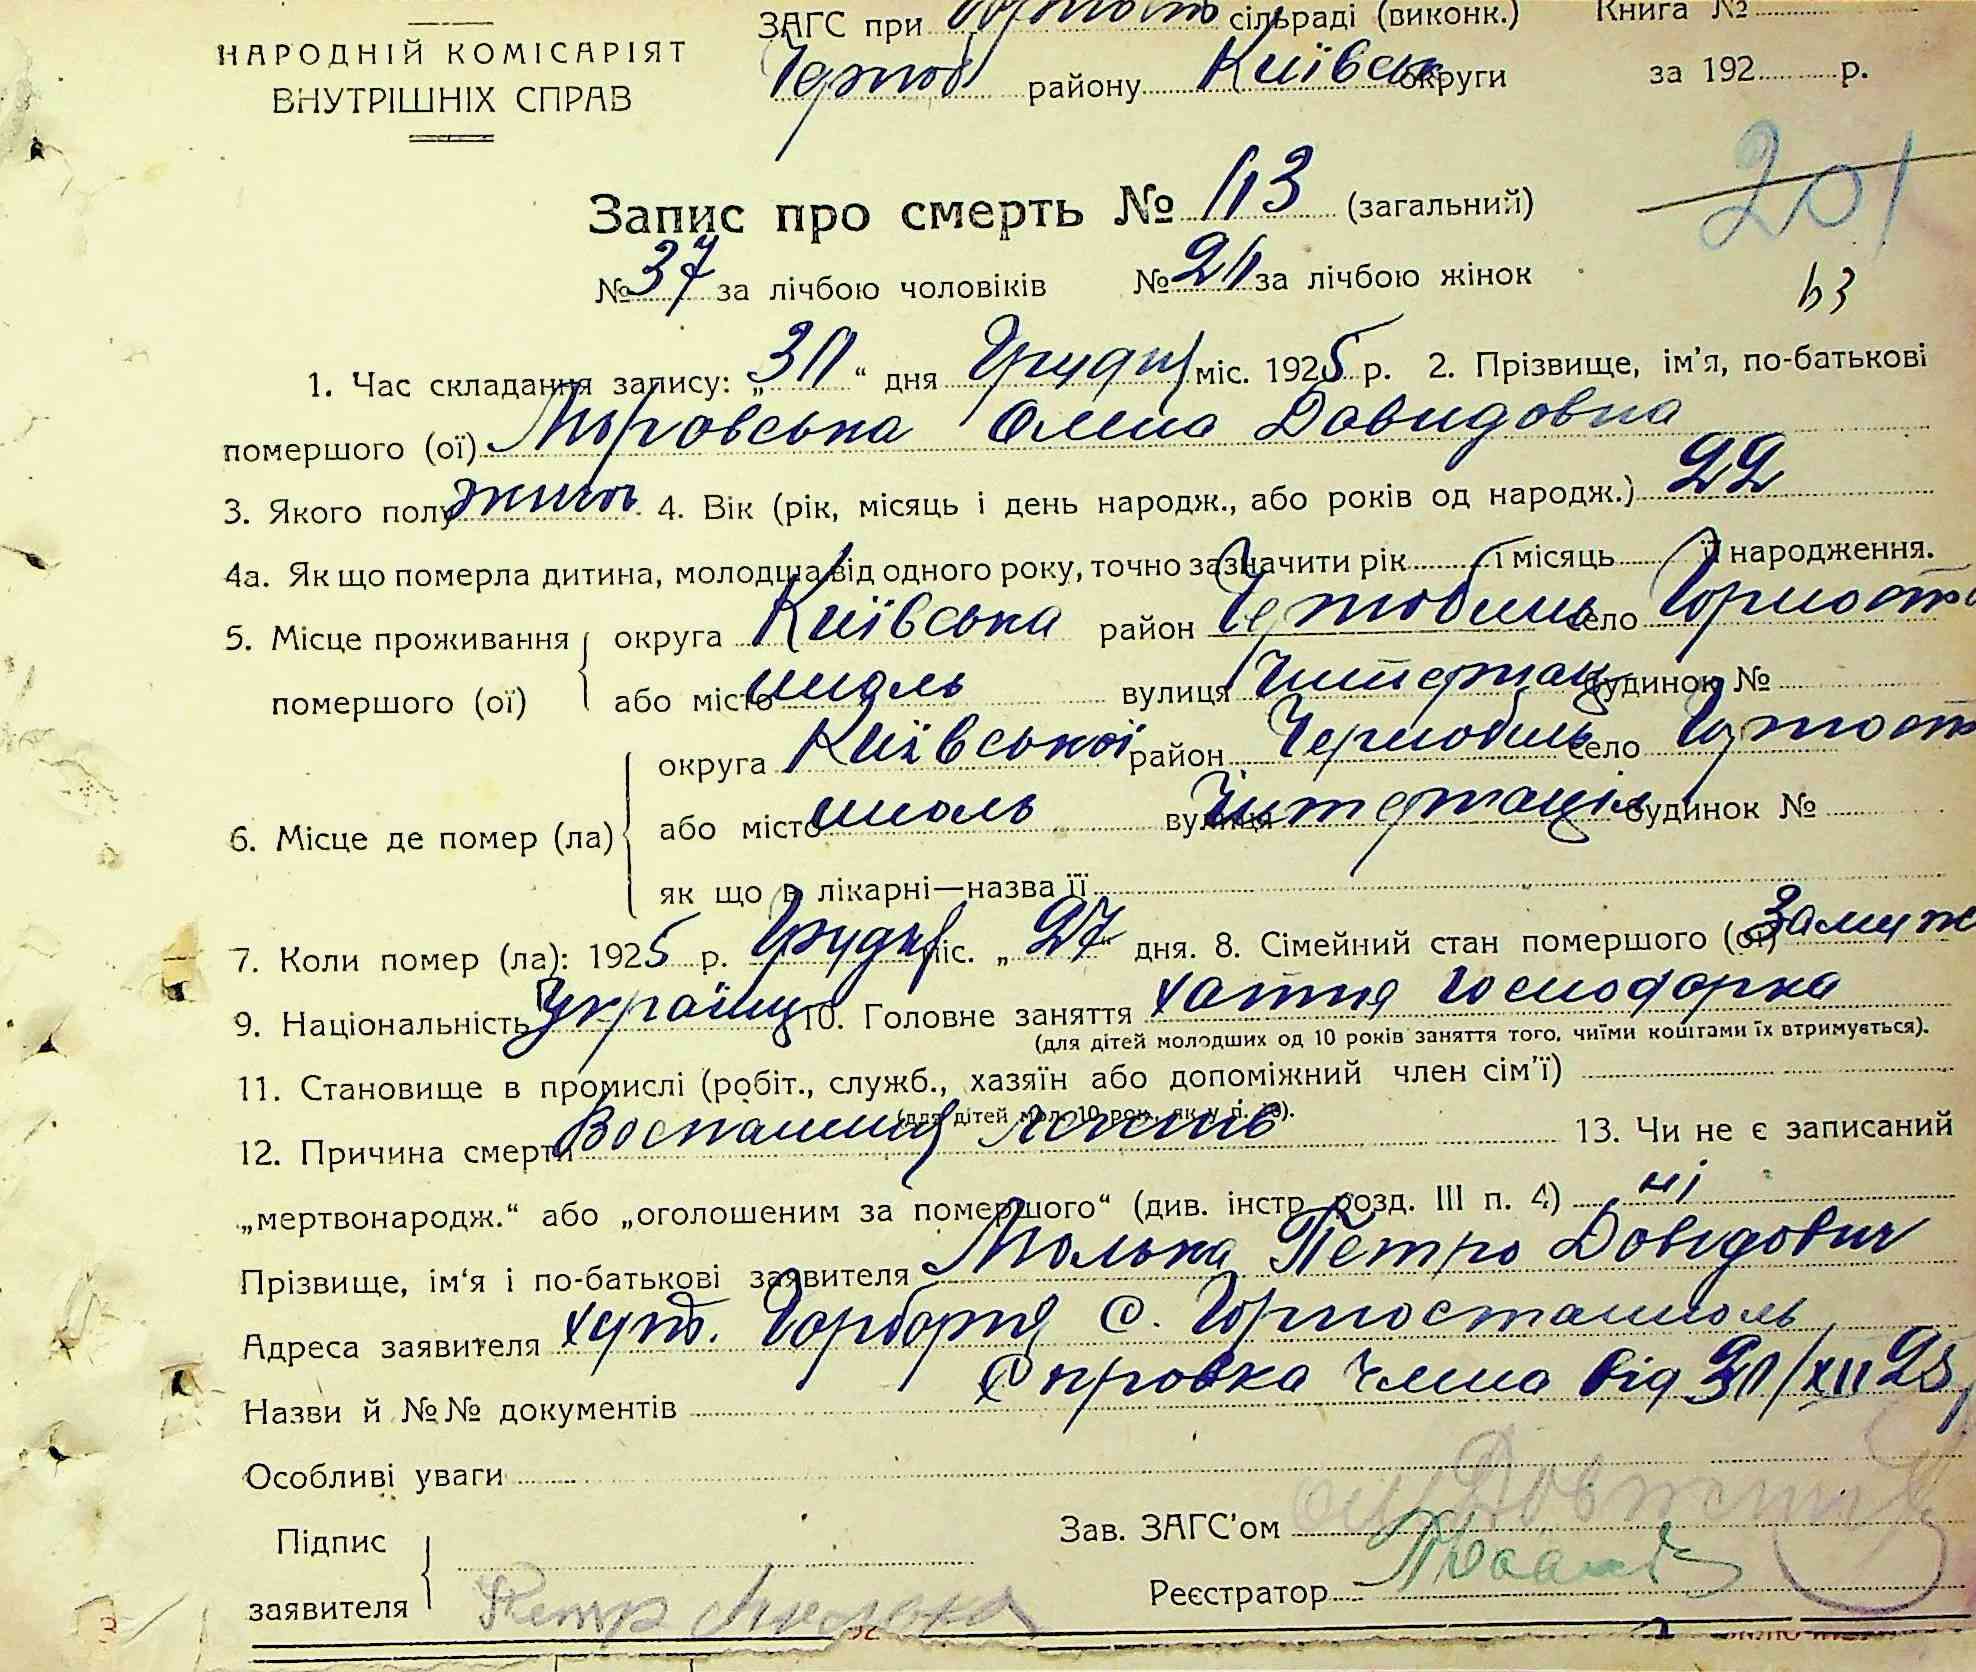 ЗАГС при сільраді (виконк.) Книга №
НАРОДНІЙ КОМІСАРІЯТ
ВНУТРІШНІХ СПРАВ
Черноб району Київськ округи за 192 р.
201
Запис про смерть № 113 (загальний)
№ 37 за лічбою чоловіків № за лічбою жінок
1. Час складання запису: „ “ дня Грудня міс. 1925 р. 2. Прізвище, ім'я, по-батькові
помершого (ої) Олена Давидовна
3. Якого полу жіноч 4. Вік (рік, місяць і день народж., або років од народж.) 22
4а. Як що померла дитина, молодша від одного року, точно зазначити рік і місяць її народження.
5. Місце проживання округа Київська район Чорнобиль село Горноста
помершого (ої) або місто вулиця будинок №
округа Київської район Чернобиль село
6. Місце де помер (ла) або місто вулиця будинок №
як що в лікарні—назва її
7. Коли помер (ла): 1925 р. Грудня міс. „ 27 “ дня. 8. Сімейний стан помершого (ої) Замуж
9. Національність україн 10. Головне заняття хатня господарка
(для дітей молодших од 10 років заняття того, чиїми коштами їх втримується).
11. Становище в промислі (робіт., служб., хазяїн або допоміжний член сім'ї)
(для дітей мол. 10 рок. як у п. 10).
12. Причина смерти Воспаления 13. Чи не є записаний
„мертвонародж.“ або „оголошеним за помершого“ (див. інстр. розд. III п. 4) ні
Прізвище, ім'я і по-батькові заявителя Молька Петро Довидович
Адреса заявителя хут. с. Горностаиполь
Назви й №№ документів Справка члена від /XII 25
Особливі уваги
Підпис
Зав. ЗАГС'ом
заявителя Петр Молька
Реєстратор